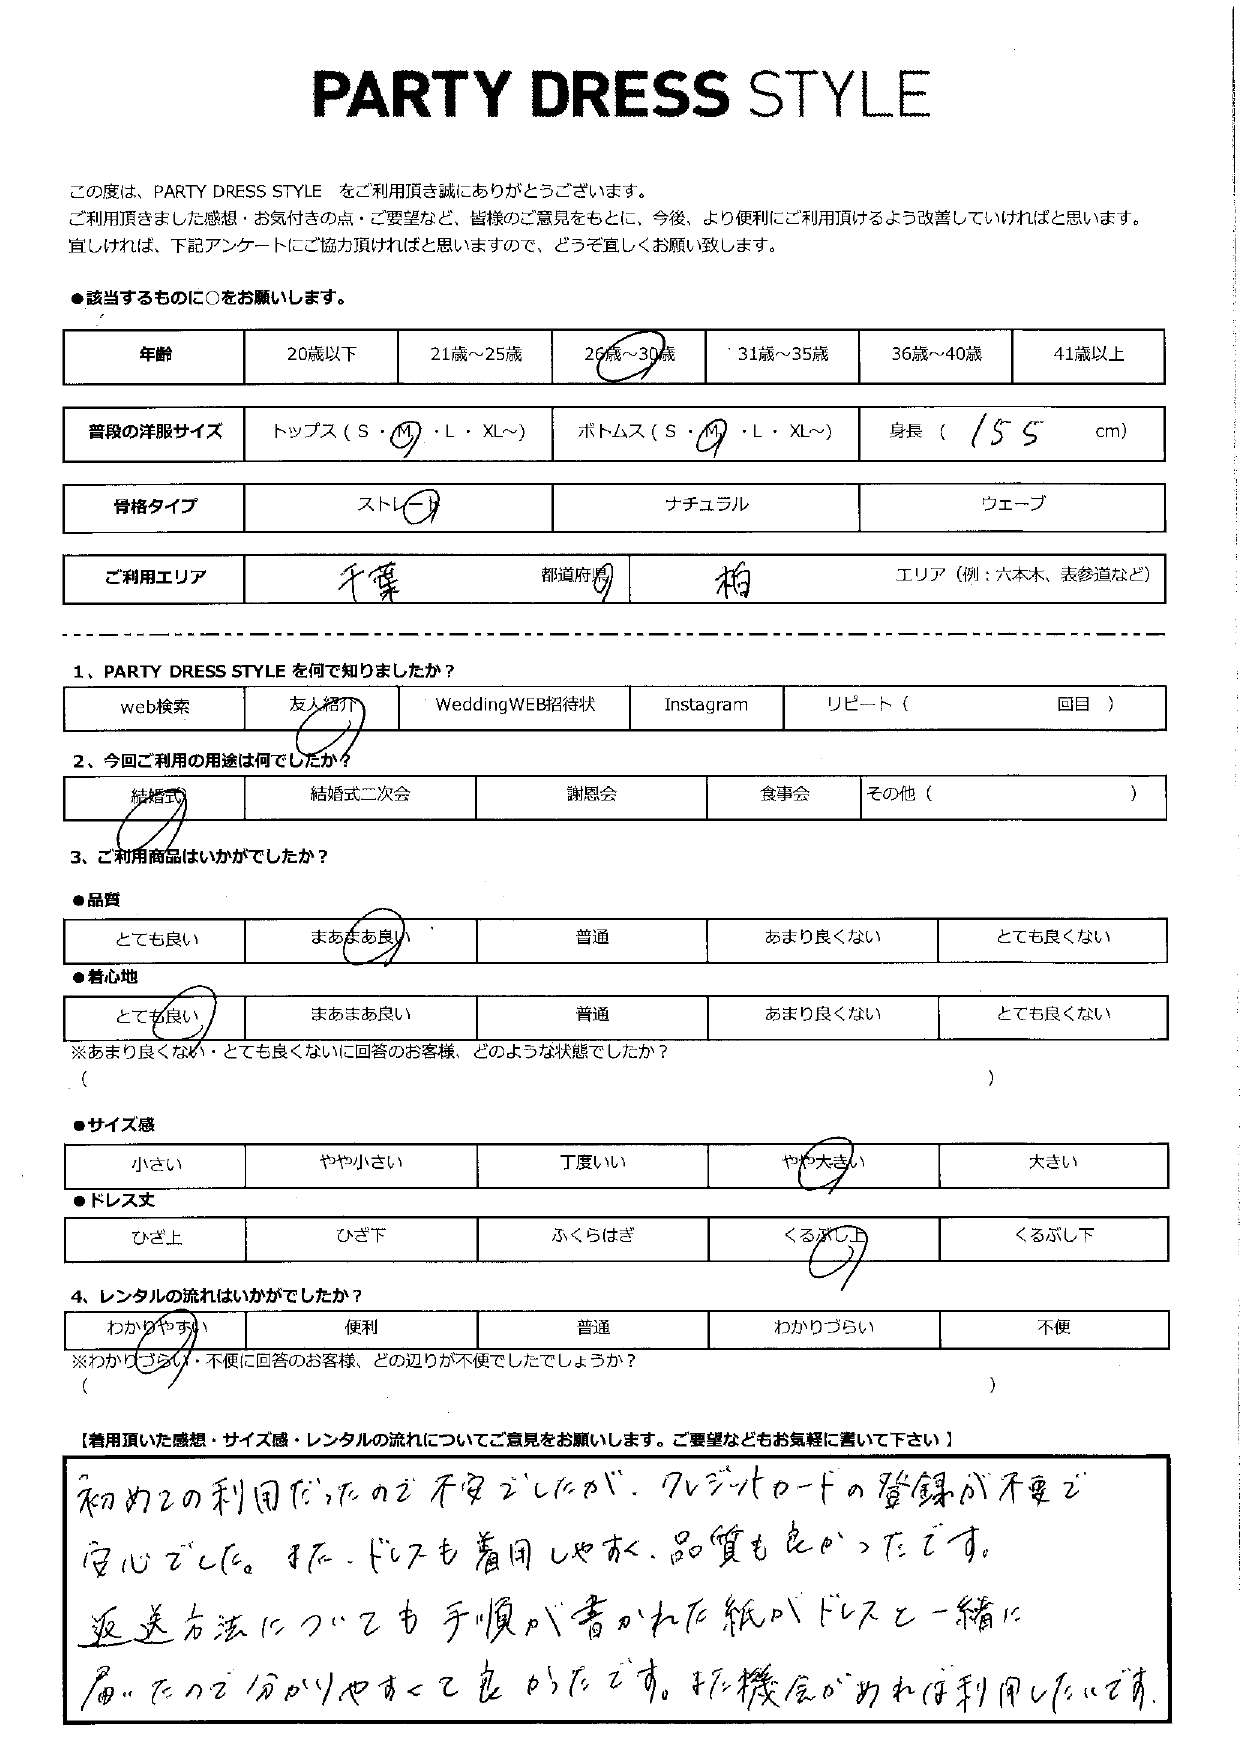 PARTY DRESS STYLE
この度は、PARTY DRESS STYLE をご利用頂き誠にありがとうございます。
ご利用頂きました感想・お気付きの点・ご要望など、皆様のご意見をもとに、今後、より便利にご利用頂けるよう改善していければと思います。
宜しければ、下記アンケートにご協力頂ければと思いますので、どうぞ宜しくお願い致します。
●該当するものに○をお願いします。
年齢 20歳以下 21歳～25歳 26歳～30歳 31歳～35歳 36歳～40歳 41歳以上
普段の洋服サイズ トップス ( S ・ M ・ L ・ XL～) ボトムス ( S ・ M ・ L ・ XL～) 身長 ( 155 cm)
骨格タイプ ストレート ナチュラル ウェーブ
ご利用エリア 千葉 都道府県 柏 エリア（例：六本木、表参道など）
1、PARTY DRESS STYLE を何で知りましたか？
web検索 友人紹介 WeddingWEB招待状 Instagram リピート（ 回目 ）
2、今回ご利用の用途は何でしたか？
結婚式 結婚式二次会 謝恩会 食事会 その他（ ）
3、ご利用商品はいかがでしたか？
●品質
とても良い まあまあ良い 普通 あまり良くない とても良くない
●着心地
とても良い まあまあ良い 普通 あまり良くない とても良くない
※あまり良くない・とても良くないに回答のお客様、どのような状態でしたか？
（ ）
●サイズ感
小さい やや小さい 丁度いい やや大きい 大きい
●ドレス丈
ひざ上 ひざ下 ふくらはぎ くるぶし上 くるぶし下
4、レンタルの流れはいかがでしたか？
わかりやすい 便利 普通 わかりづらい 不便
※わかりづらい・不便に回答のお客様、どの辺りが不便でしたでしょうか？
（ ）
【着用頂いた感想・サイズ感・レンタルの流れについてご意見をお願いします。ご要望などもお気軽に書いて下さい 】
初めての利用だったので不安でしたが、クレジットカードの登録が不要で
安心でした。また、ドレスも着用しやすく、品質も良かったです。
返送方法についても手順が書かれた紙がドレスと一緒に
届いたので分かりやすくて良かったです。また機会があれば利用したいです。